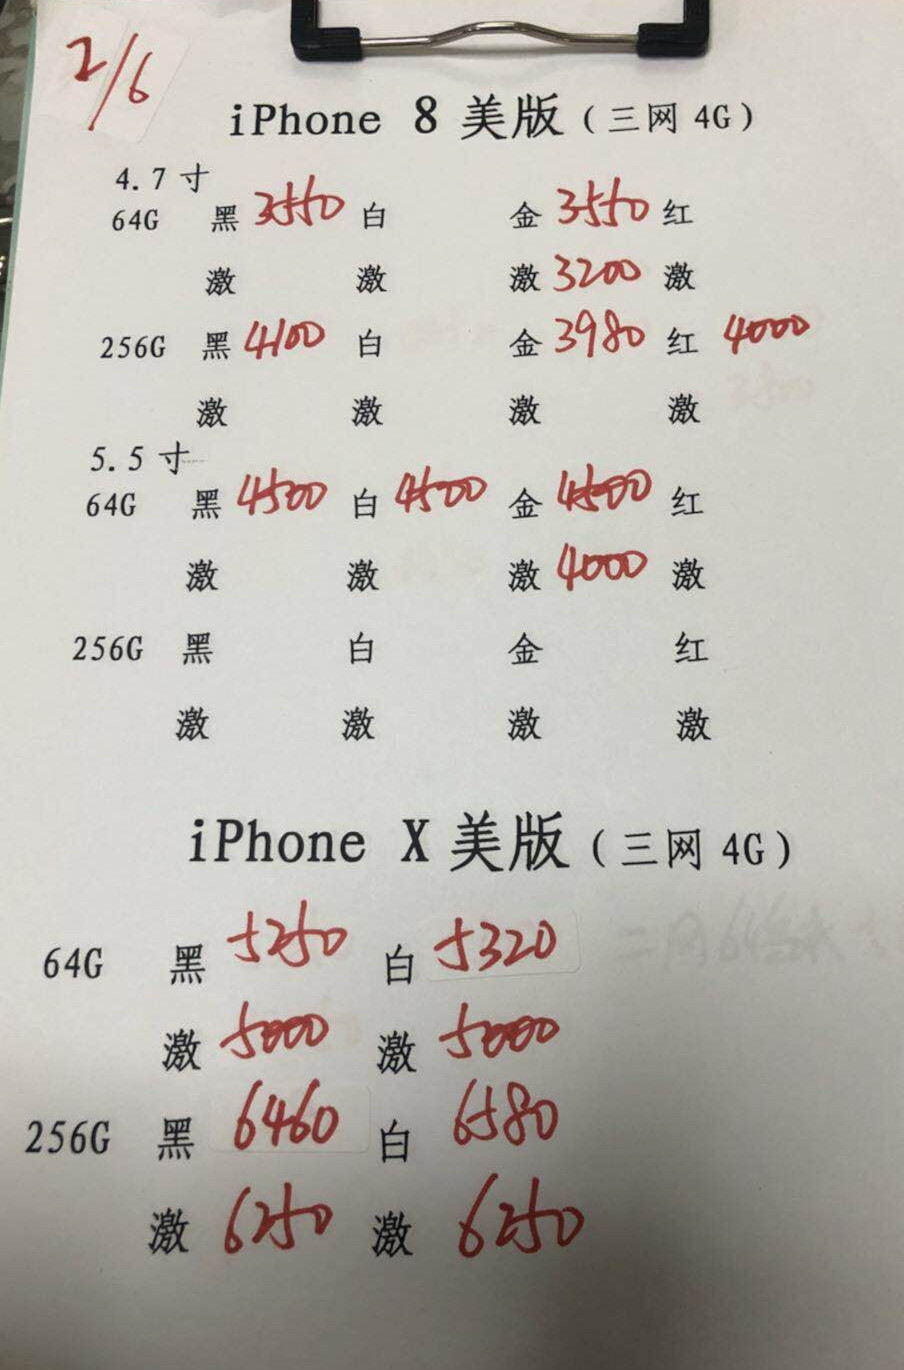 2/6
iPhone 8 美版(三网 4G)
4.7 寸
64G 黑 3550 白 金 3550 红
激 激 激 3200 激
256G 黑 4100 白 金 3980 红 4000
激 激 激 激
5.5 寸
64G 黑 4500 白 4500 金 4500 红
激 激 激 4000 激
256G 黑 白 金 红
激 激 激 激
iPhone X 美版(三网 4G)
64G 黑 5250 白 5320
激 5000 激 5000
256G 黑 6460 白 6580
激 6250 激 6250